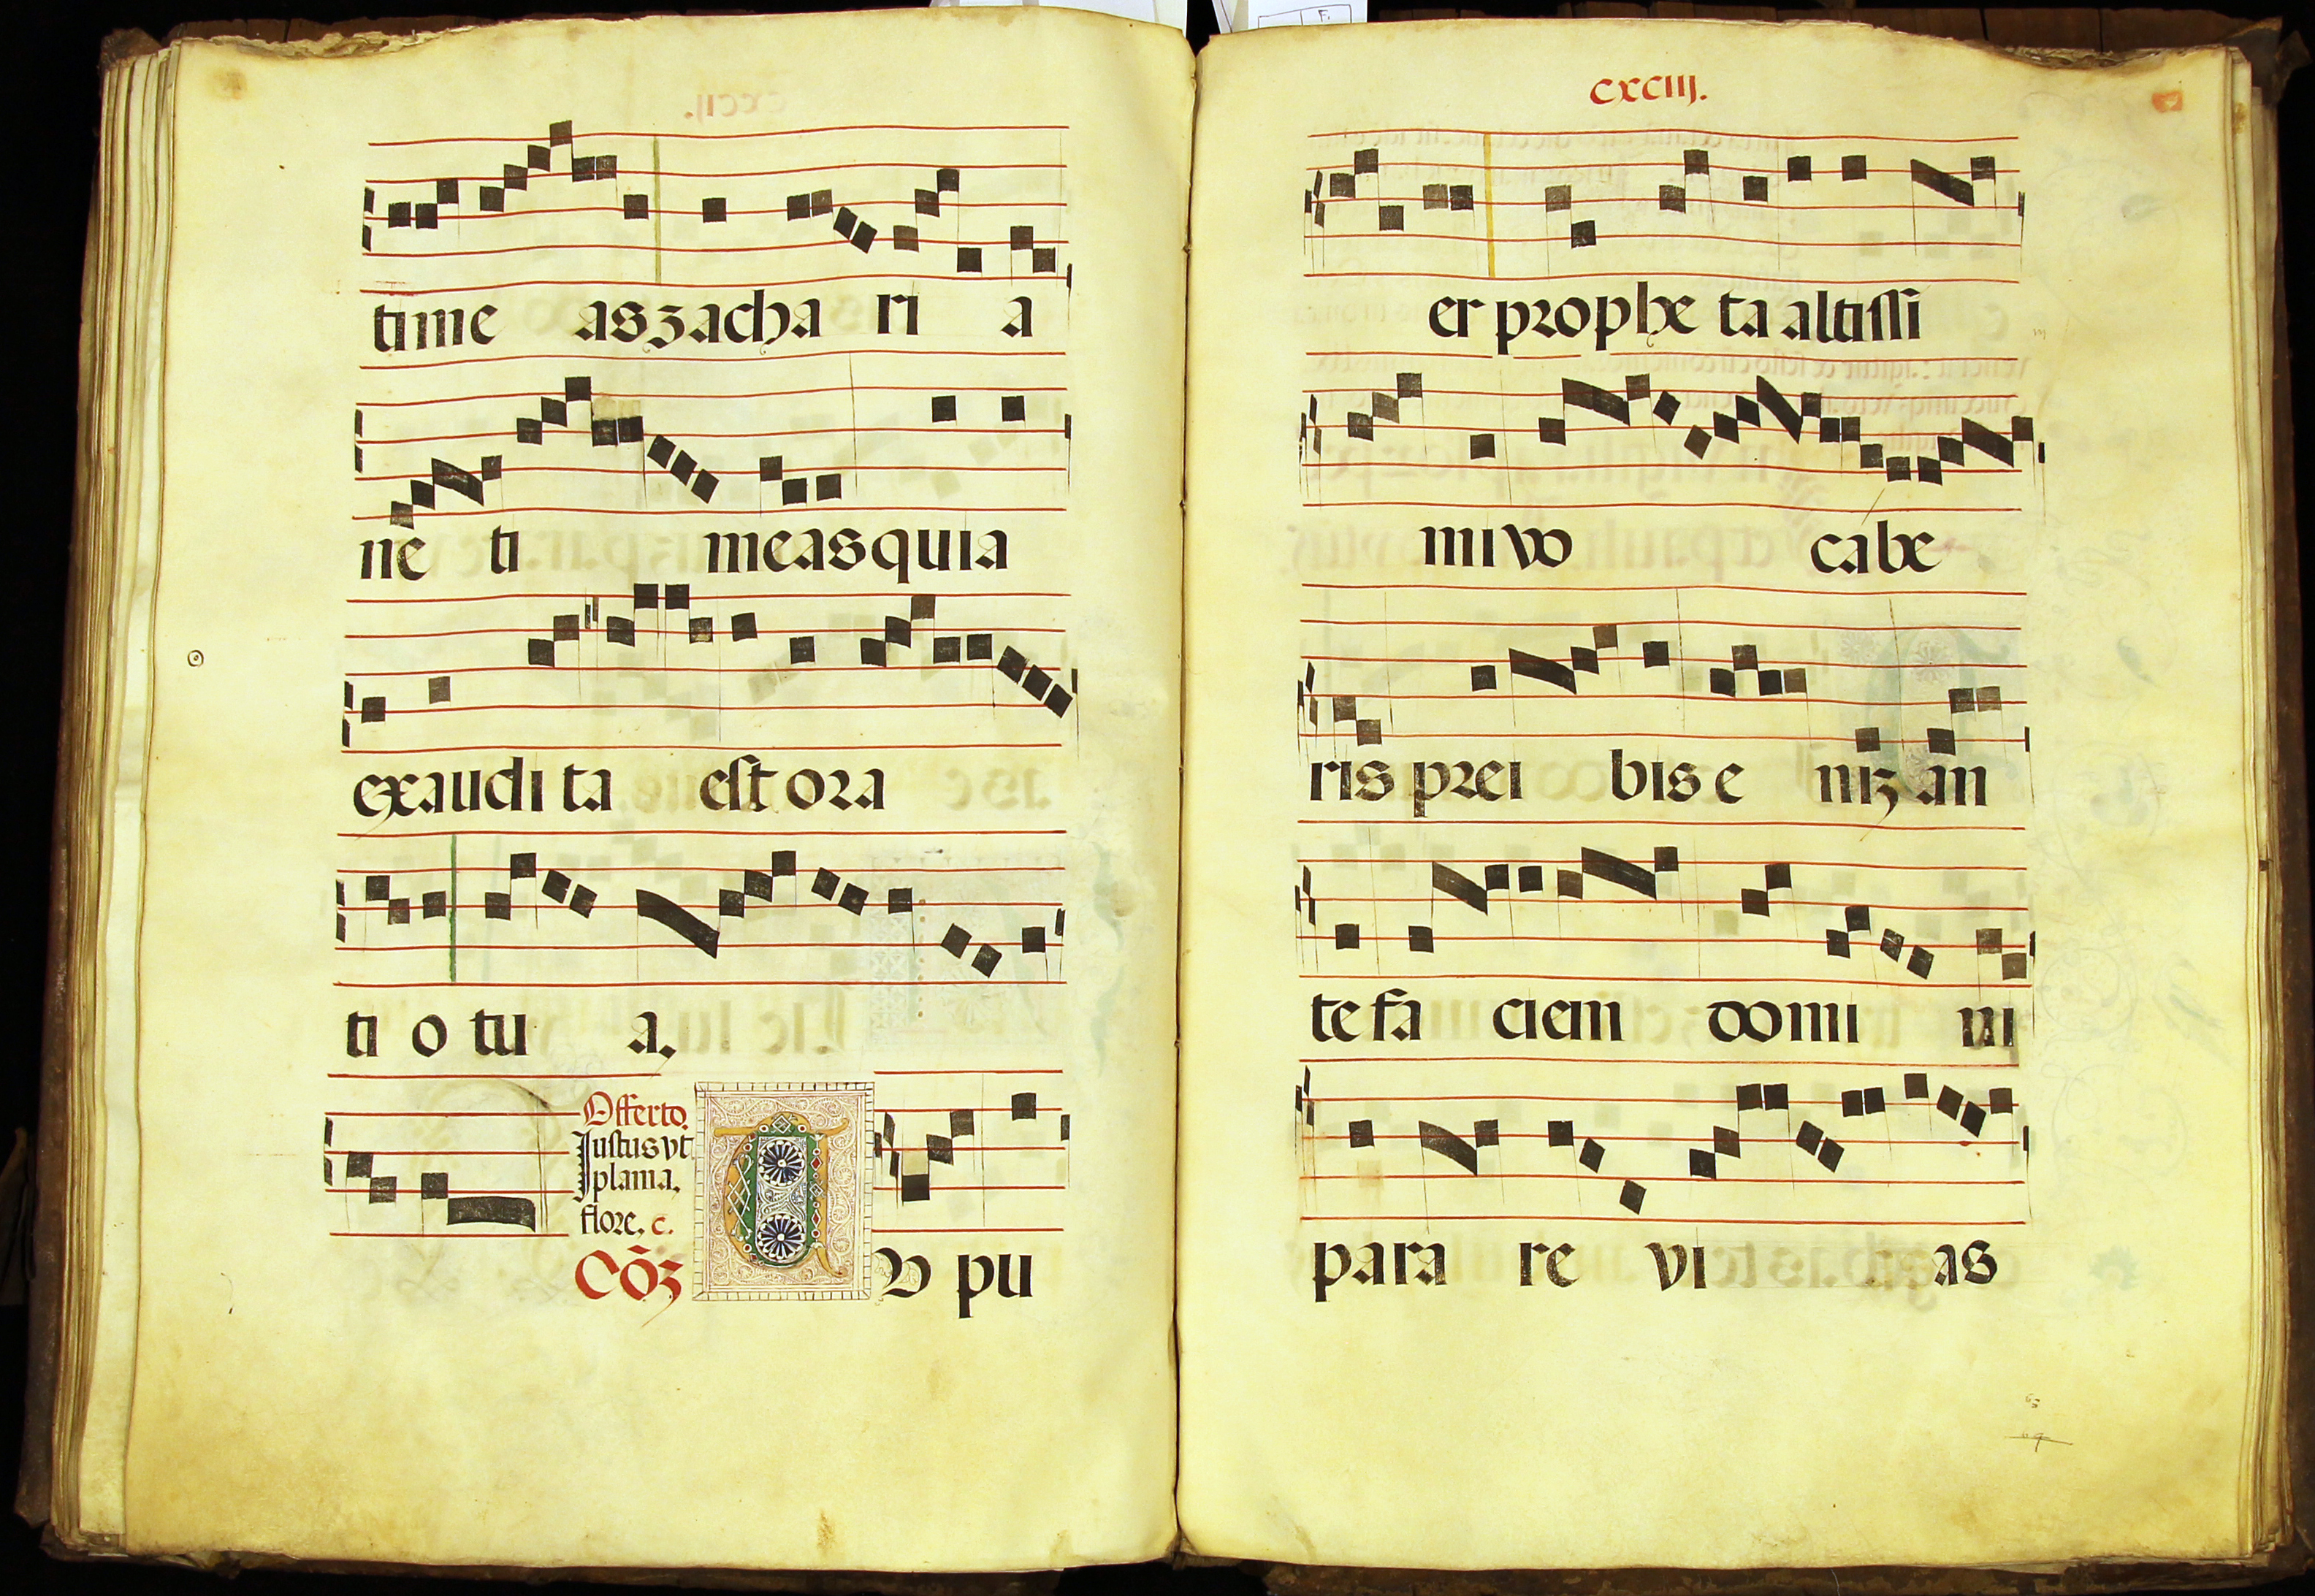 time as zacha ri a
ne ti meas quia
exaudi ta est ora
ti o tu a.
Offerto.
Justus vt
plama.
flore. c.
Cōȝ T V pu
cxciij.
er prophe ta altissi
mi vo cabe
ris prei bis e niȝ an
te fa ciem domi ni
para re vi as